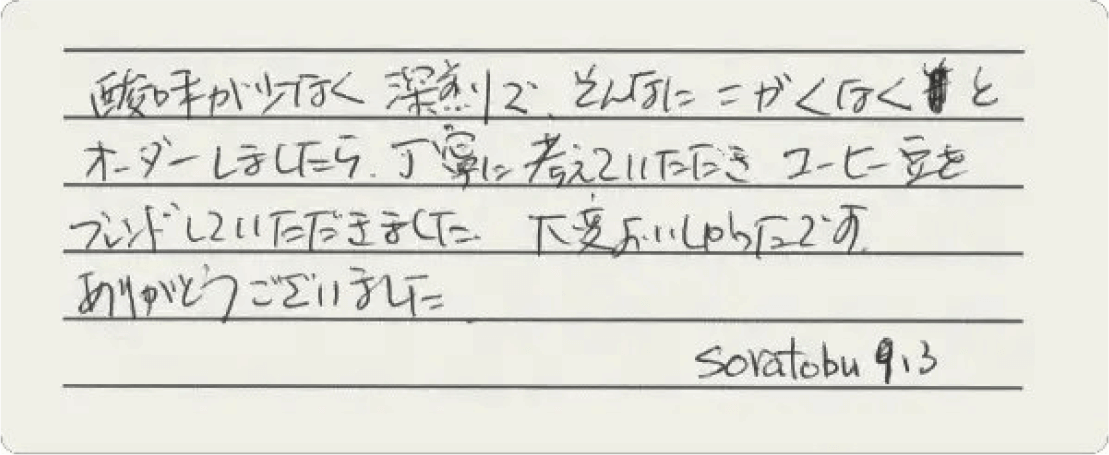 酸味が少なく 深煎りで、そんなにこがくなくと
オーダーしましたら、丁寧に考えていただき コーヒー豆を
ブレンドしていただきました。 大変おいしかったです。
ありがとうございました。
soratobu 9.3